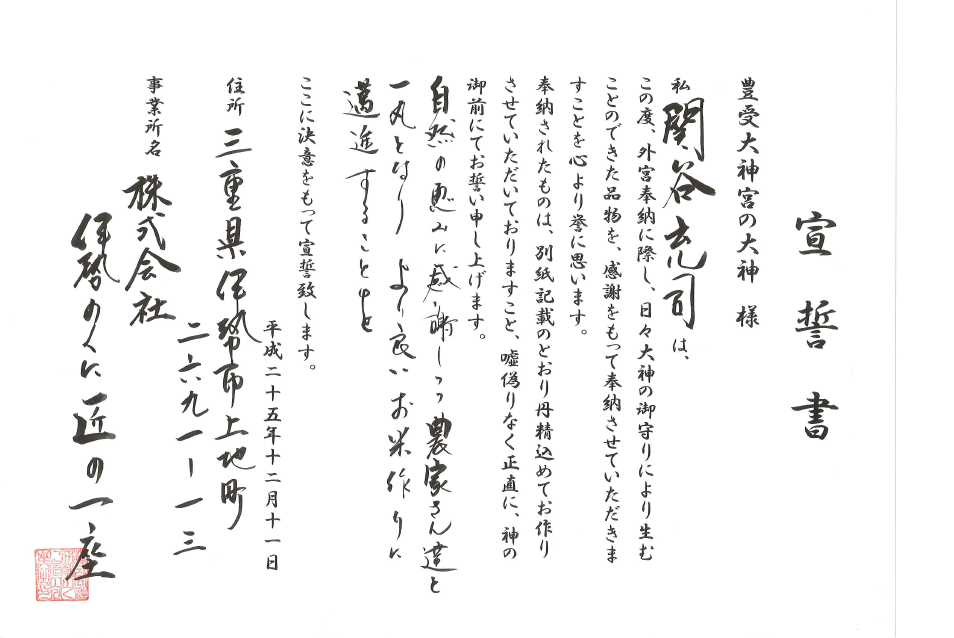 宣誓書
豊受大神宮の大神 様
私 関谷充司 は、
この度、外宮奉納に際し、日々大神の御守りにより生む
ことのできた品物を、感謝をもって奉納させていただきま
すことを心より誉に思います。
奉納されたものは、別紙記載のとおり丹精込めてお作り
させていただいておりますこと、嘘偽りなく正直に、神の
御前にてお誓い申し上げます。
自然の恵みに感謝しつつ農家さん達と
一丸となり より良いお米作りに
邁進することを
ここに決意をもって宣誓致します。
平成二十五年十二月十一日
住所 三重県伊勢市上地町
二六九一ー一三
事業所名 株式会社
伊勢の